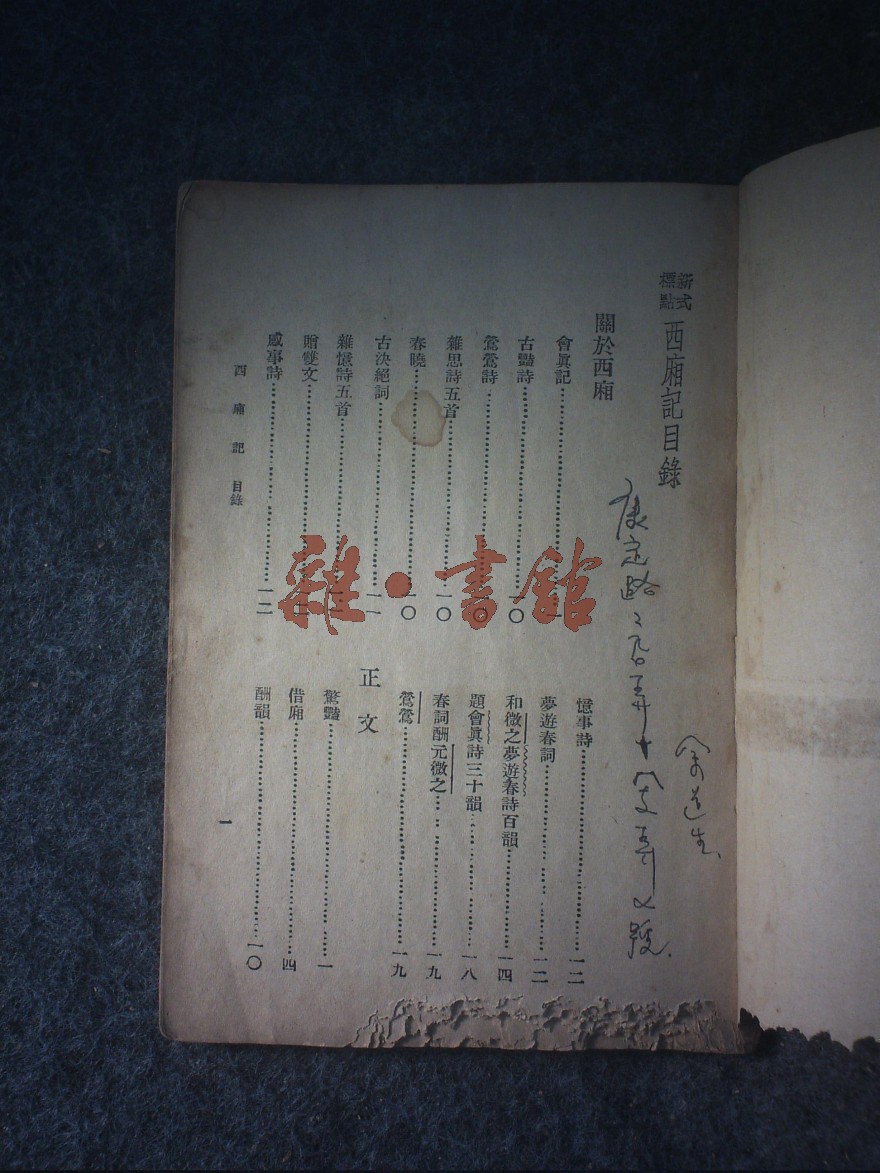 新式標點 西廂記目錄
關於西廂
會眞記……一
古豔詩……一〇
鶯鶯詩……一〇
雜思詩五首……一〇
春曉……一〇
古決絕詞……一一
雜憶詩五首
贈雙文
感事詩……一二
憶事詩……一二
夢遊春詞……一二
和微之夢遊春詩百韻……一四
題會眞詩三十韻……一八
春詞酬元微之……一九
鶯鶯……一九
正文
驚豔……一
借廂……四
酬韻……一〇
西廂記 目錄
一
康定路
號
雜·書館